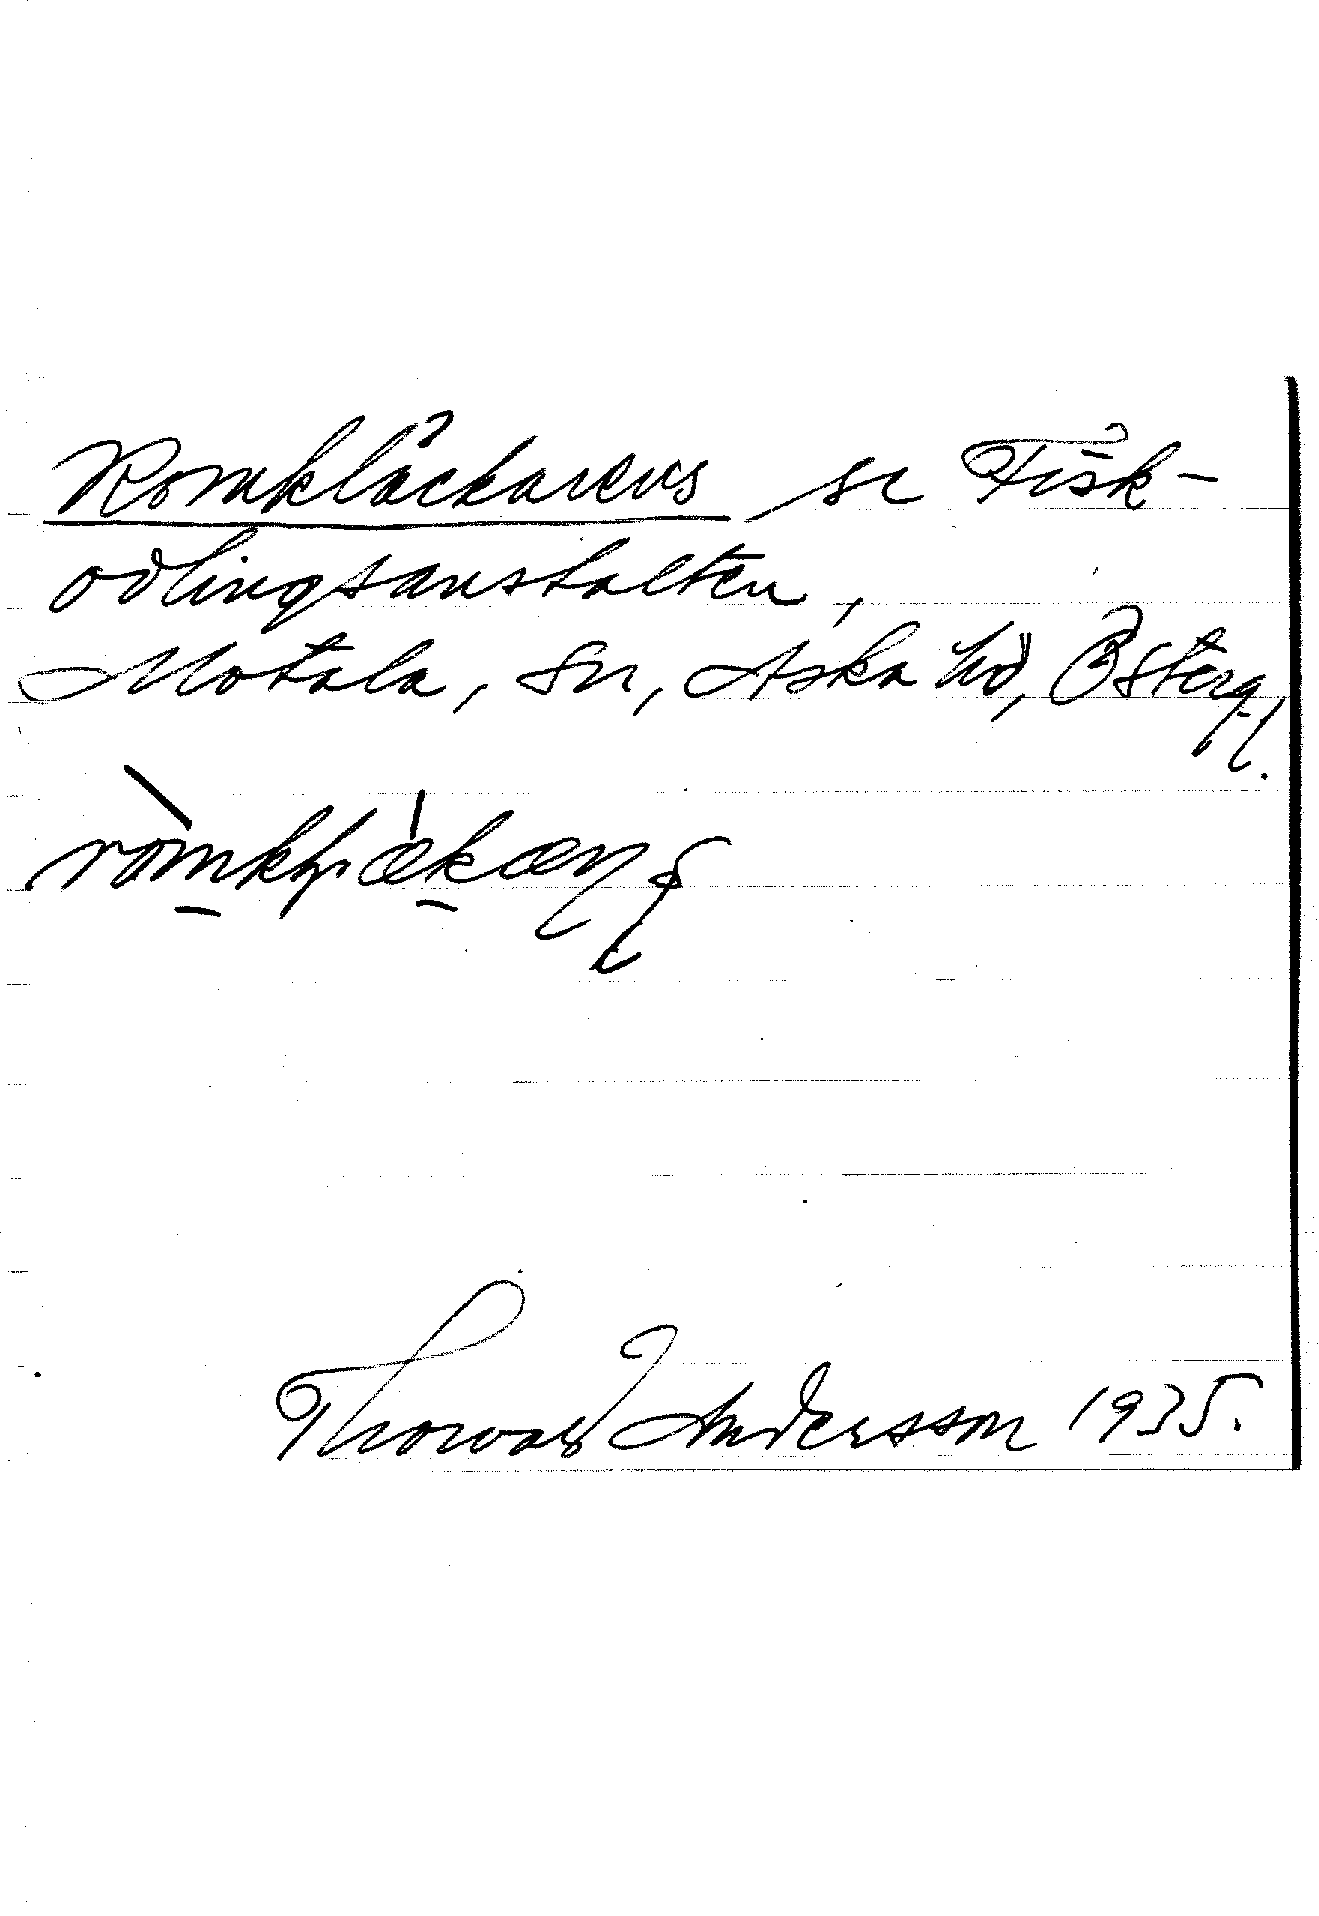 Romkläckarens se Fisk-
odlingsanstalten,
Motala, sn, Aska hd, Österg.
Thorvald Andersson 1935.